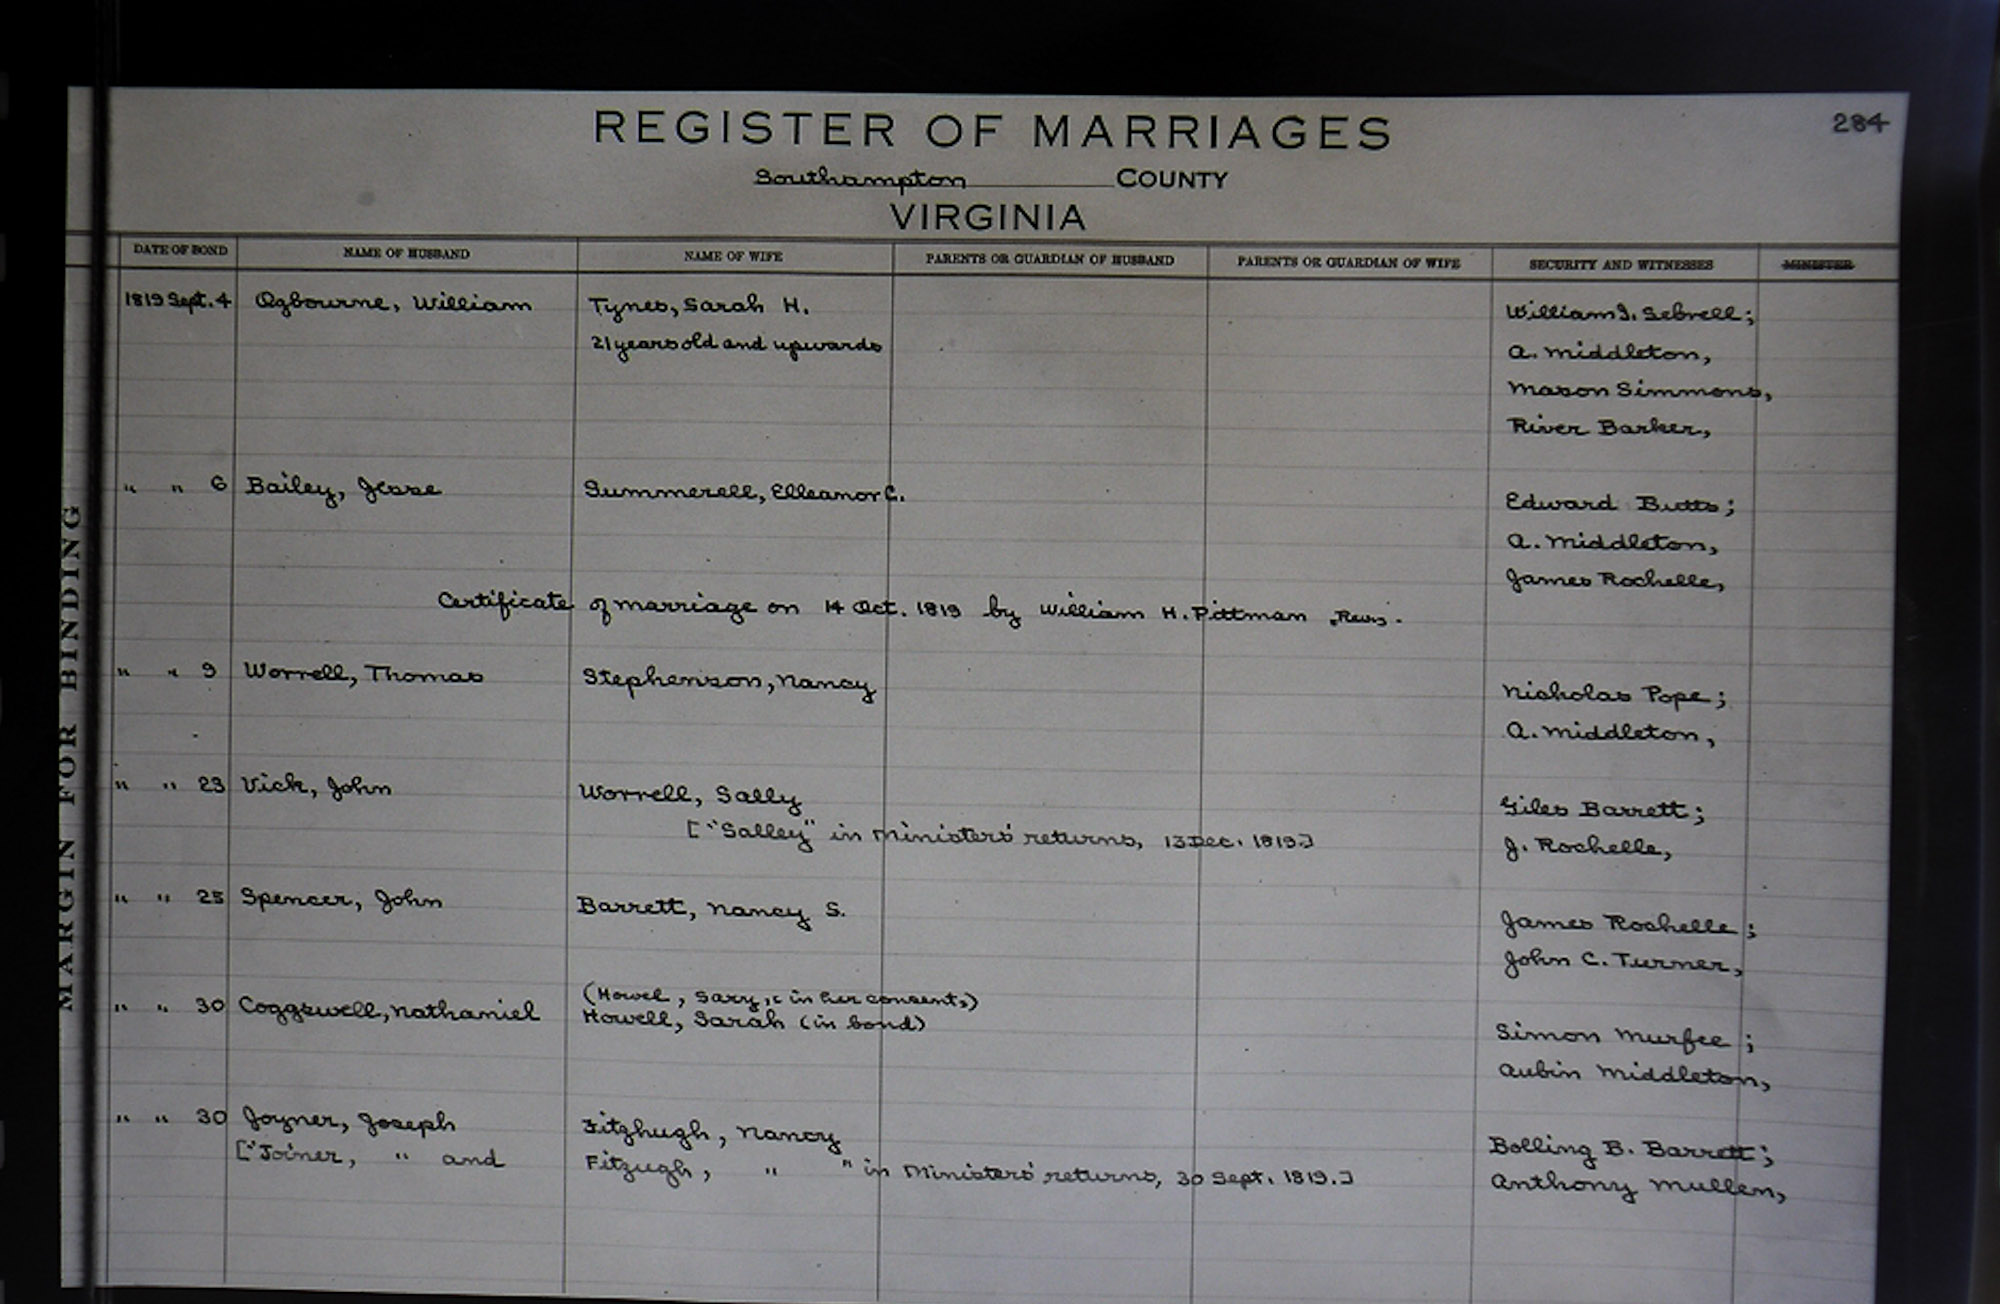 284
REGISTER OF MARRIAGES
Southampton COUNTY
VIRGINIA
DATE OF BOND NAME OF HUSBAND NAME OF WIFE PARENTS OR GUARDIAN OF HUSBAND PARENTS OR GUARDIAN OF WIFE SECURITY AND WITNESSES MINISTER
1819 Sept. 4 Ogbourne, William Tynes, Sarah H. William J. Sebrell;
21 years old and upwards A. Middleton,
Mason Simmons,
River Barker,
" " 6 Bailey, Jesse Summerell, Elleanor C. Edward Butts;
A. Middleton,
James Rochelle,
Certificate of marriage on 14 Oct. 1819 by William H. Pittman
" " 9 Worrell, Thomas Stephenson, Nancy Nicholas Pope;
A. Middleton,
" " 23 Vick, John Worrell, Sally Giles Barrett;
["Salley" in Ministers' returns, 13 Dec. 1819.] J. Rochelle,
" " 25 Spencer, John Barrett, Nancy S. James Rochelle;
John C. Turner,
(Howel, Sary, in her consent,)
" " 30 Coggswell, Nathaniel Howell, Sarah (in bond) Simon Murfee;
Aubin Middleton,
" " 30 Joyner, Joseph Fitzhugh, Nancy Bolling B. Barrett;
["Joiner, " and Fitzugh, " " in Ministers' returns, 30 Sept. 1819.] Anthony Mullen,
MARGIN FOR BINDING